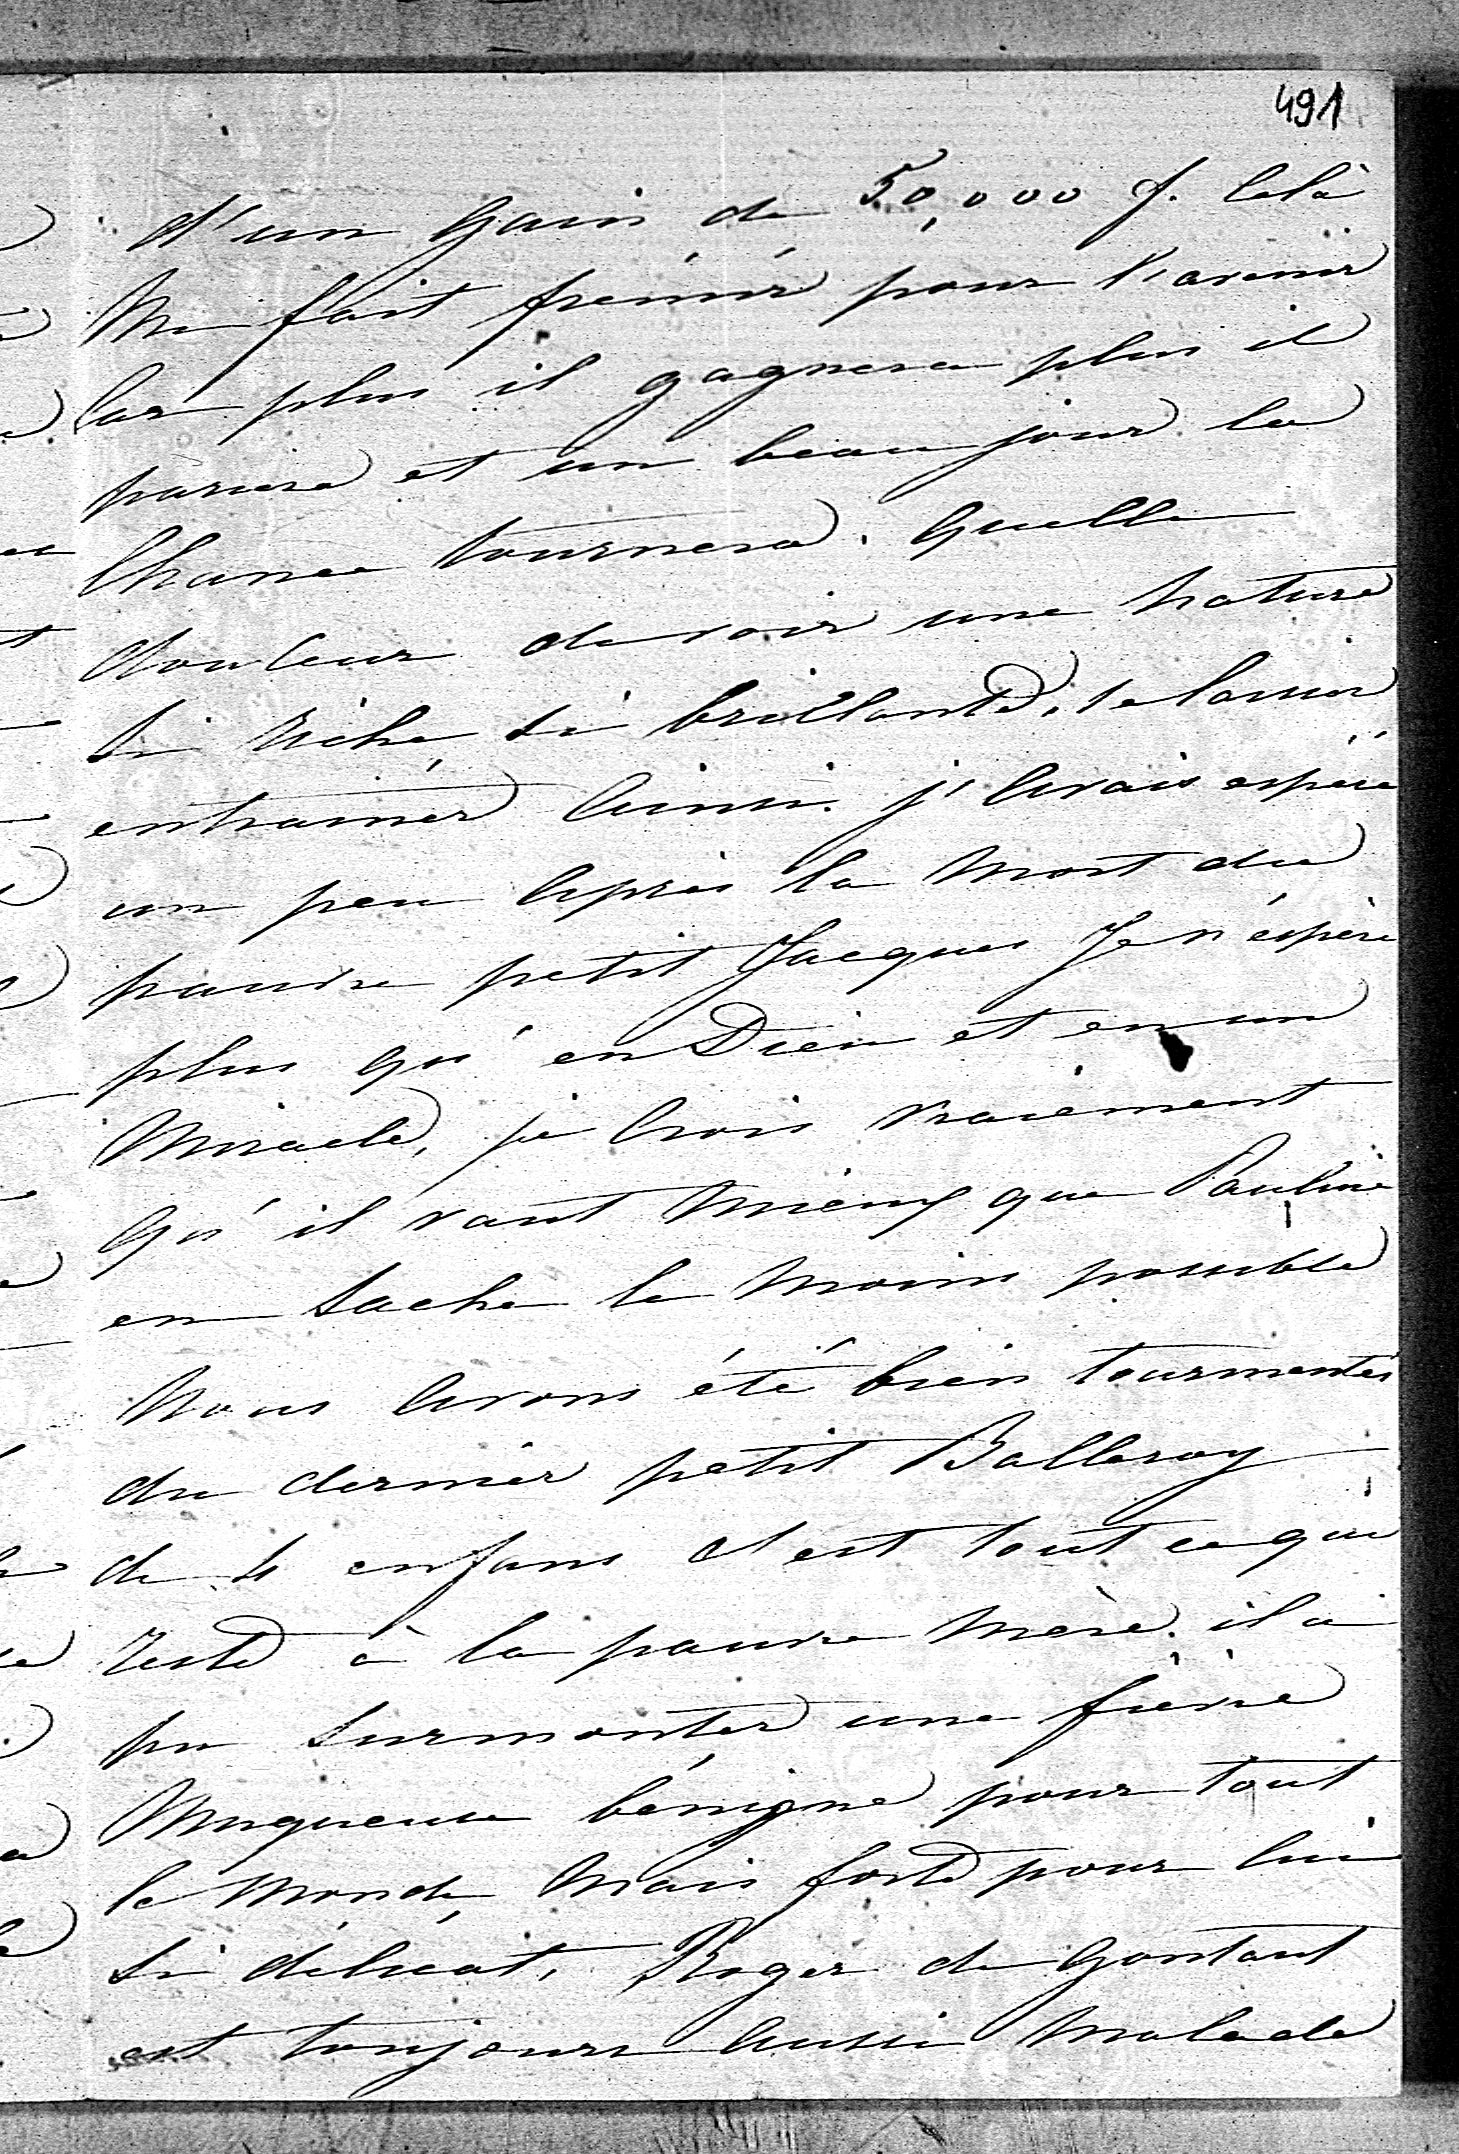 491
d'un Gain de 50,000 f. Celà
Me fait frémir pour l'avenir
Car plus il gagnera plus il
pariera et un beau jour la
Chance tournera. Quelle
douleur de voir une Nature
Si riche, Si brillante, se laisser
entrainer Ainsi. j'Avais espéré
un peu Après la Mort du
pauvre petit Jacques Je n'éspère
plus qu'en Dieu et en un
Miracle, je Crois vraiement
Qu'il vaut Mieux que Pauline
en Sache le Moins possible
Nous Avons été bien tourmentés
du dernier petit Balleroy
de 4 enfans C'est tout ce qui
reste à la pauvre Mère. il a
pu Surmonter une fièvre
Muqueuse bénigne pour tout
le Monde, Mais forte pour lui
Si délicat, Roger de Gontaut
est toujours Aussi Malade